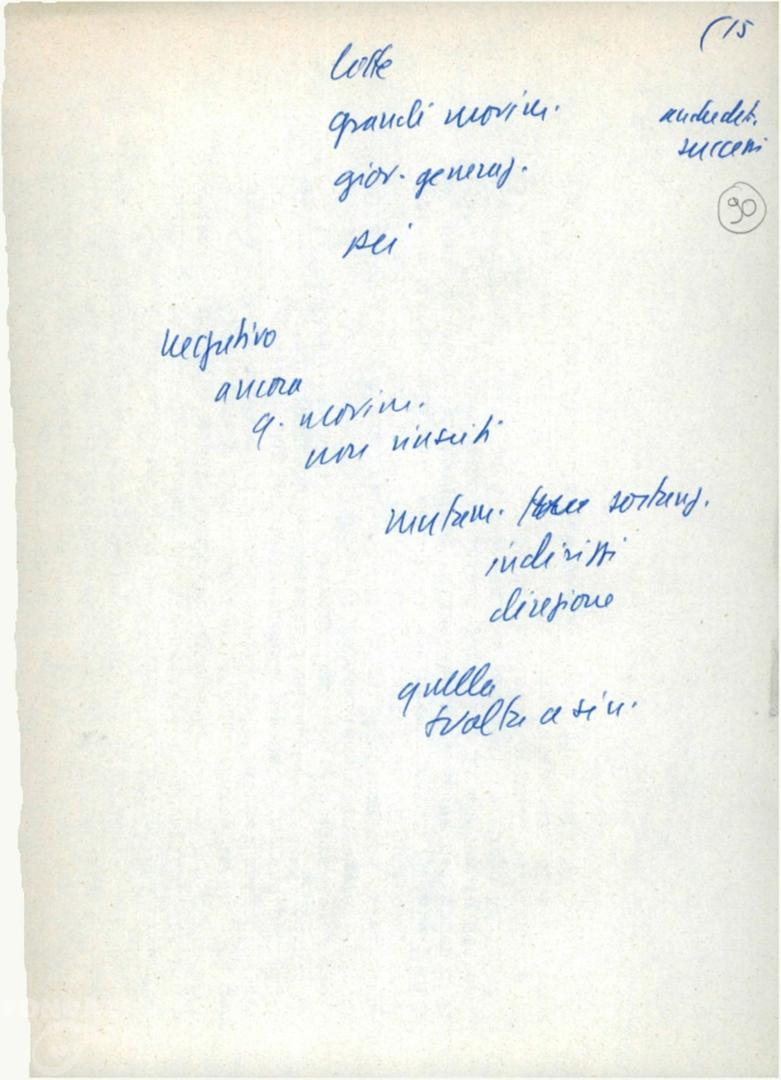 (15
lotte
grandi movim.
anche det.
successi
gior. generaz.
90
pci
negativo
ancora
q. movim.
non riusciti
mutam. sostanz.
indirizzi
direzione
quella
svolta a sin.